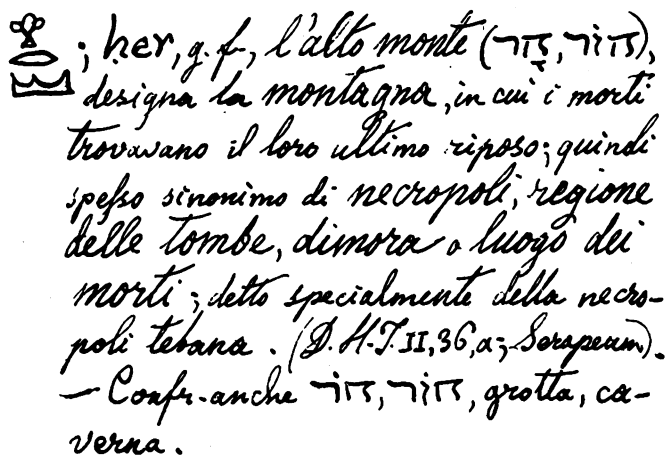 ; ḥer, g. f., l'alto monte (הָר, הוֹר),
designa la montagna, in cui i morti
trovavano il loro ultimo riposo; quindi
spesso sinonimo di necropoli, regione
delle tombe, dimora o luogo dei
morti; detto specialmente della necro-
poli tebana. (D. H-I. II, 36, a; Serapeum).
— Confr. anche חֹר, חוֹר, grotta, ca-
verna.